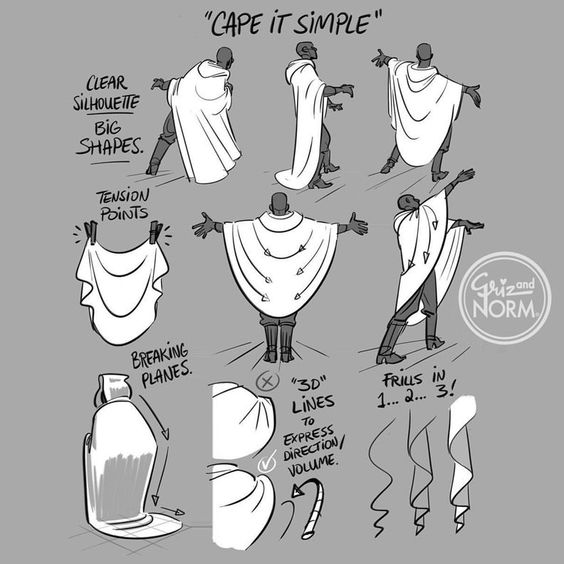 "CAPE IT SIMPLE"
CLEAR
SILHOUETTE
BIG
SHAPES.
TENSION
POINTS
Griz and
NORM
BREAKING
PLANES.
"3D"
LINES
TO
EXPRESS
DIRECTION/
VOLUME.
FRILLS IN
1... 2... 3!